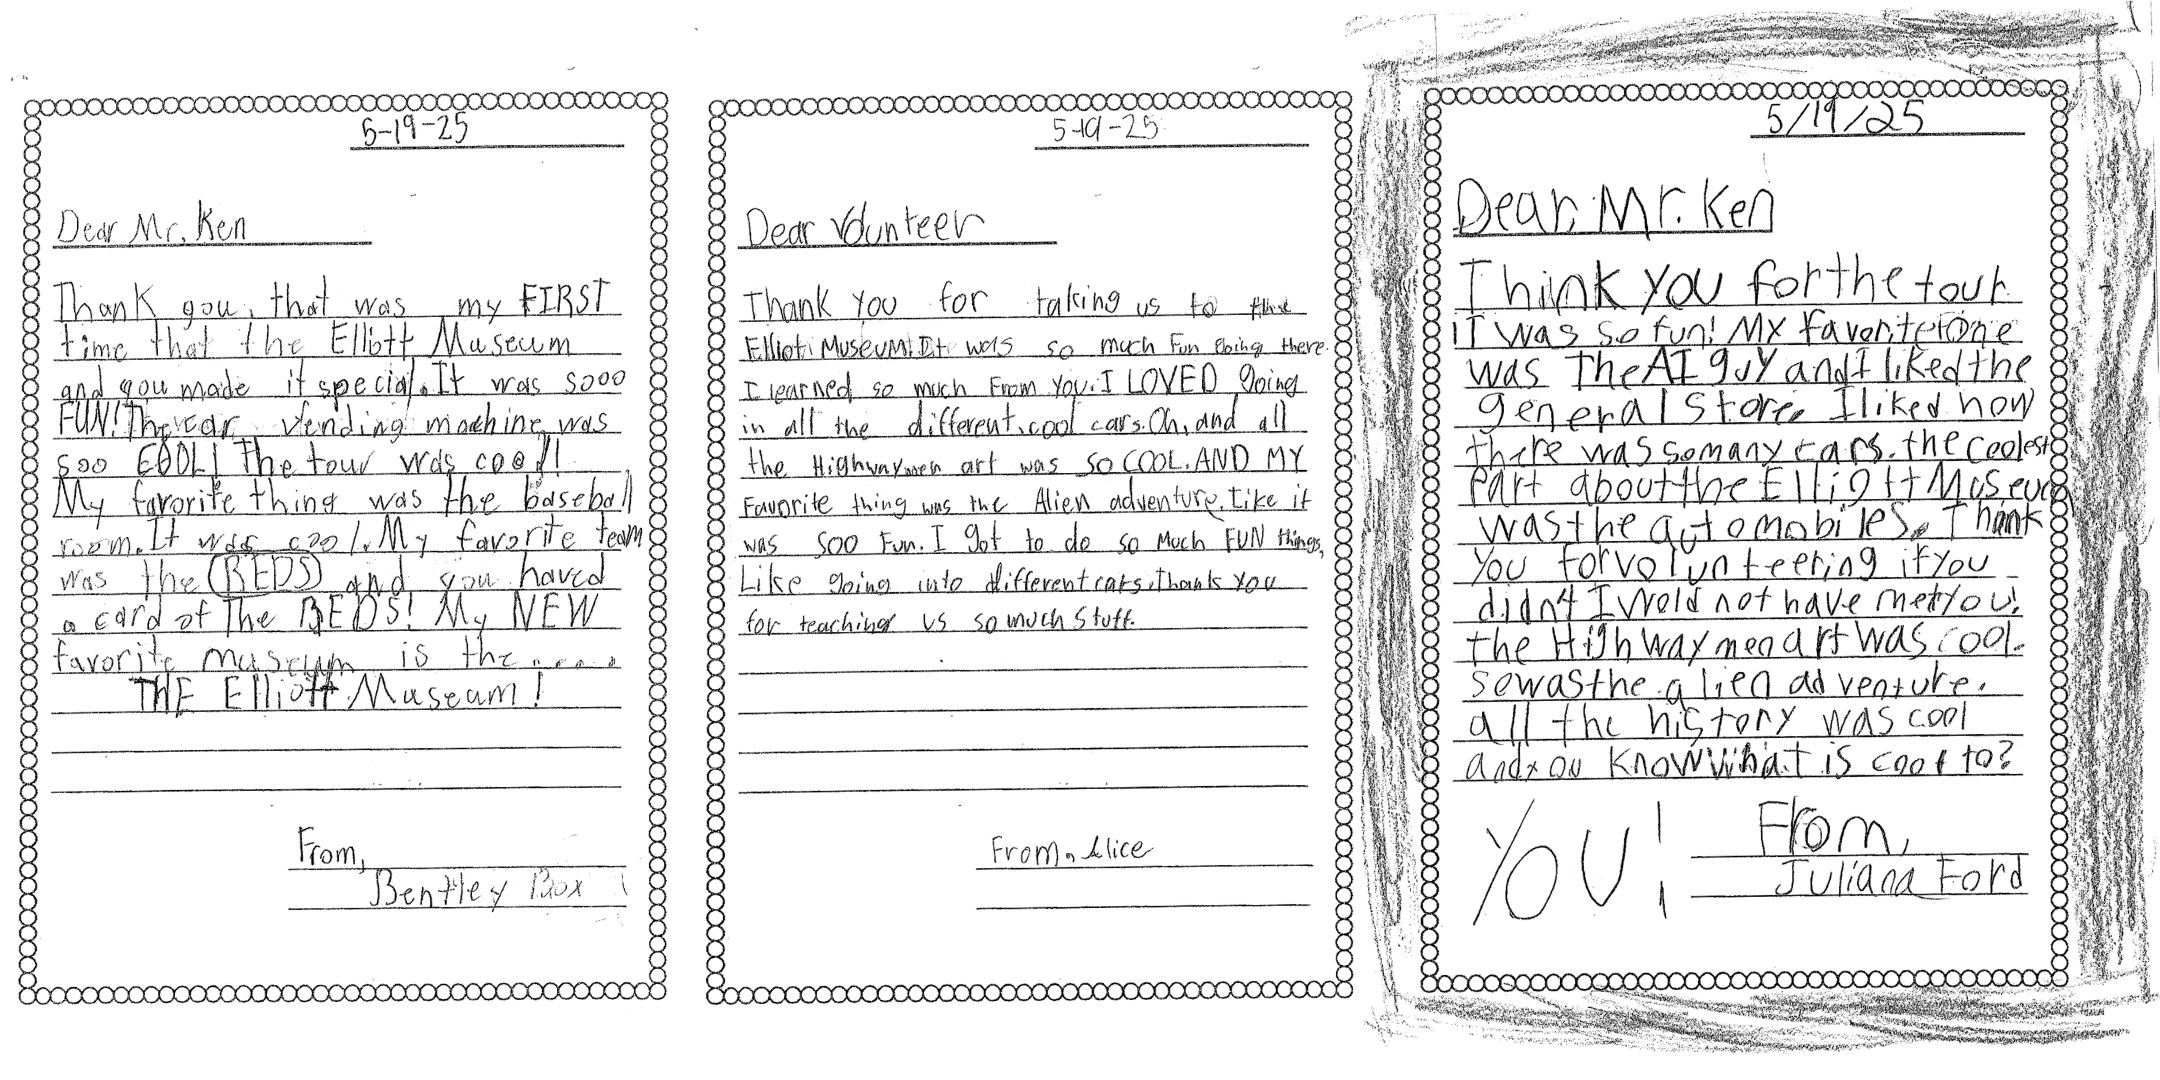 5-19-25
Dear Mr. Ken
Thank you, that was my FIRST
time that the Elliott Museum
and you made it special. It was sooo
FUN! The car vending machine was
soo COOL! The tour was cool!
My favorite thing was the baseball
room. It was cool. My favorite team
was the REDS and you haved
a card of The REDS! My NEW
favorite museum is the.....
THE Elliott Museum!
From,
Bentley Box
5-19-25
Dear Volunteer
Thank you for taking us to the
Elliott Museum! It was so much Fun going there.
I learned so much From you. I LOVED going
in all the different, cool cars. Oh, and all
the Highwaymen art was so COOL. AND MY
Favorite thing was the Alien adventure. Like it
was soo Fun. I got to do so Much FUN things,
Like going into different cars. Thank you
for teaching us so much stuff.
From, Alice
5/19/25
Dear, Mr. Ken
Think you for the tour
it was so fun! My favorite one
was The AI guy and I liked the
general store. I liked how
there was so many cars. the coolest
part about the Elligtt Museum
was the automobiles. Thank
you for volunteering if you
didn't I wold not have met you!
the Highwaymen art was cool.
sowas the alien adventure.
all the history was cool
and you know what is cool to?
YOU!
From,
Juliana Ford